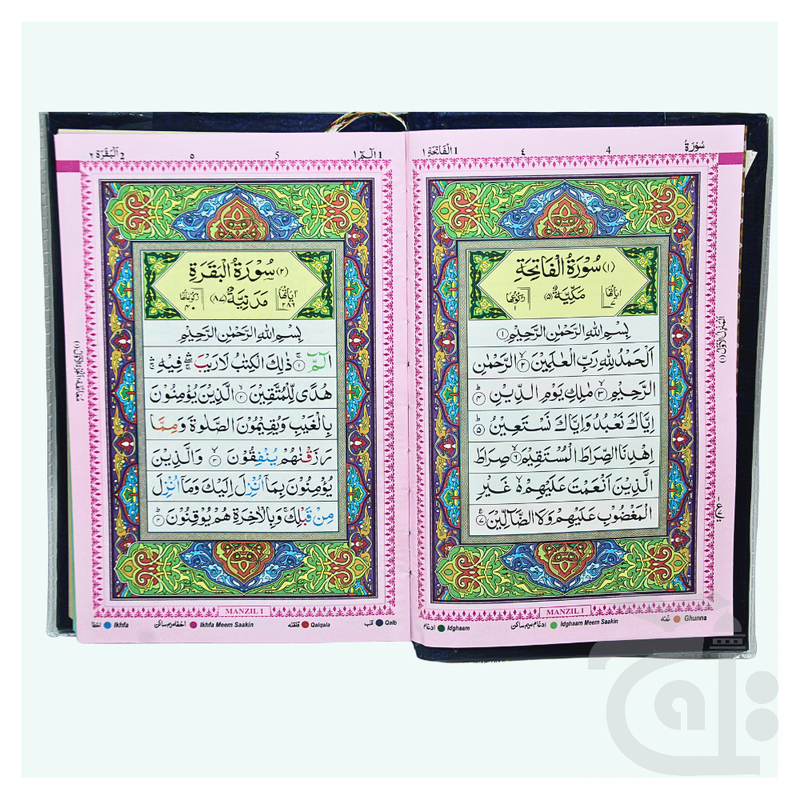 سُوْرَةُ
4
٤
1 اَلْفَاتِحَة ١
(١) سُوْرَةُ الْفَاتِحَةِ
اٰيَاتُهَا ٧
مَكِّيَّةٌ (٥)
رُكُوْعُهَا ١
بِسْمِ اللّٰهِ الرَّحْمٰنِ الرَّحِيْمِ ١
اَلْحَمْدُ لِلّٰهِ رَبِّ الْعٰلَمِيْنَ ٢ الرَّحْمٰنِ
الرَّحِيْمِ ٣ مٰلِكِ يَوْمِ الدِّيْنِ ٤
اِيَّاكَ نَعْبُدُ وَاِيَّاكَ نَسْتَعِيْنُ ٥
اِهْدِنَا الصِّرَاطَ الْمُسْتَقِيْمَ ٦ صِرَاطَ
الَّذِيْنَ اَنْعَمْتَ عَلَيْهِمْ ۙ غَيْرِ
الْمَغْضُوْبِ عَلَيْهِمْ وَلَا الضَّآلِّيْنَ ٧
MANZIL 1
ادغام Idghaam
ادغام میم ساکن Idghaam Meem Saakin
غنه Ghunna
1 الٓمّٓ ١
5
٥
2 اَلْبَقَرَة ٢
(٢) سُوْرَةُ الْبَقَرَةِ
اٰيَاتُهَا ٢٨٦
مَدَنِيَّةٌ (٨٧)
رُكُوْعَاتُهَا ٤٠
بِسْمِ اللّٰهِ الرَّحْمٰنِ الرَّحِيْمِ
الٓمّٓ ١ ذٰلِكَ الْكِتٰبُ لَا رَيْبَ فِيْهِ
هُدًى لِّلْمُتَّقِيْنَ ٢ الَّذِيْنَ يُؤْمِنُوْنَ
بِالْغَيْبِ وَيُقِيْمُوْنَ الصَّلٰوةَ وَمِمَّا
رَزَقْنٰهُمْ يُنْفِقُوْنَ ٣ وَالَّذِيْنَ
يُؤْمِنُوْنَ بِمَآ اُنْزِلَ اِلَيْكَ وَمَآ اُنْزِلَ
مِنْ قَبْلِكَ وَبِالْاٰخِرَةِ هُمْ يُوْقِنُوْنَ ٤
MANZIL 1
اخفا Ikhfa
اخفا میم ساکن Ikhfa Meem Saakin
قلقله Qalqala
قلب Qalb